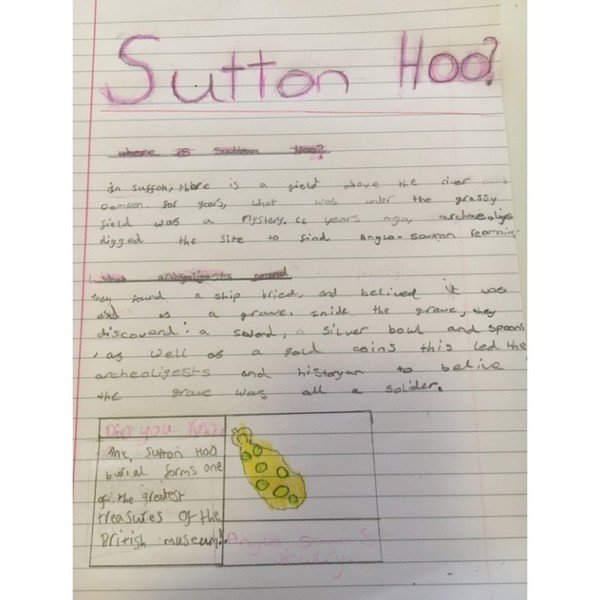 Sutton Hoo?
where is Sutton Hoo?
In Suffolk, there is a field above the river
for years, what was under the grassy
field was a mystery. years ago, archaeoligs
digged the site to find Anglo-saxon remains.
What archeoligests found
They found a ship bried, and belived it was
used as a grave. Inside the grave, they
discoverd: a sword, a silver bowl and spoons
, as well as a gold coins this led the
archeoligests and historyan to belive
the grave was all a solider.
Did you know
The, Sutton Hoo
burial forms one
of the greatest
treasures of the
British museum!
Anglo Saxons
jewlry